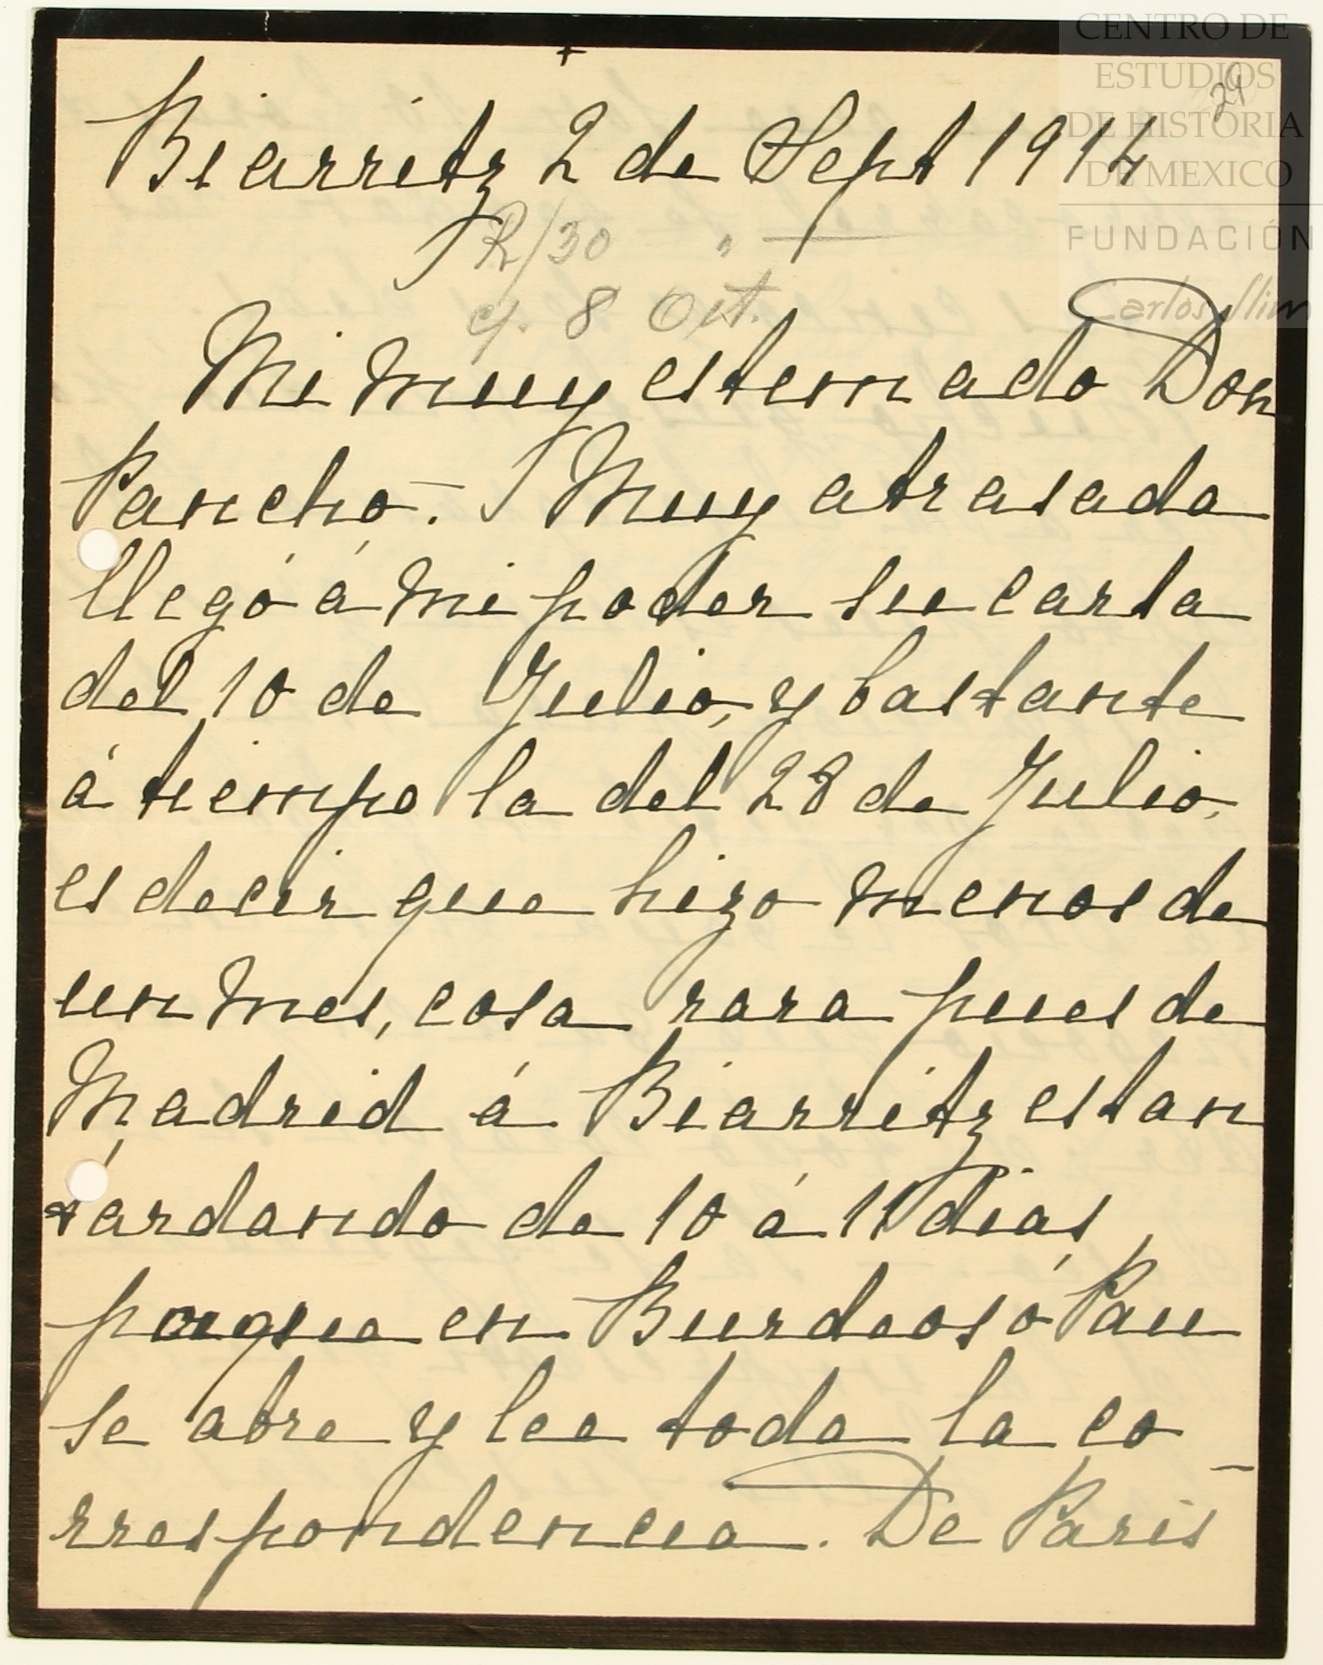 +
29
CENTRO DE
ESTUDIOS
DE HISTORIA
DE MEXICO
FUNDACIÓN
Carlos Slim
Biarritz 2 de Sept 1914
R/30 "
y. 8 Oct.
Mi muy estimado Don
Pancho. Muy atrasada
llegó á mi poder su carta
del 10 de Julio, y bastante
á tiempo la del 28 de Julio,
es decir que hizo menos de
un mes, cosa rara pues de
Madrid á Biarritz estan
tardando de 10 á 11 dias,
porque en Burdeos ó Pau
se abre y lee toda la co-
rrespondencia. De Paris